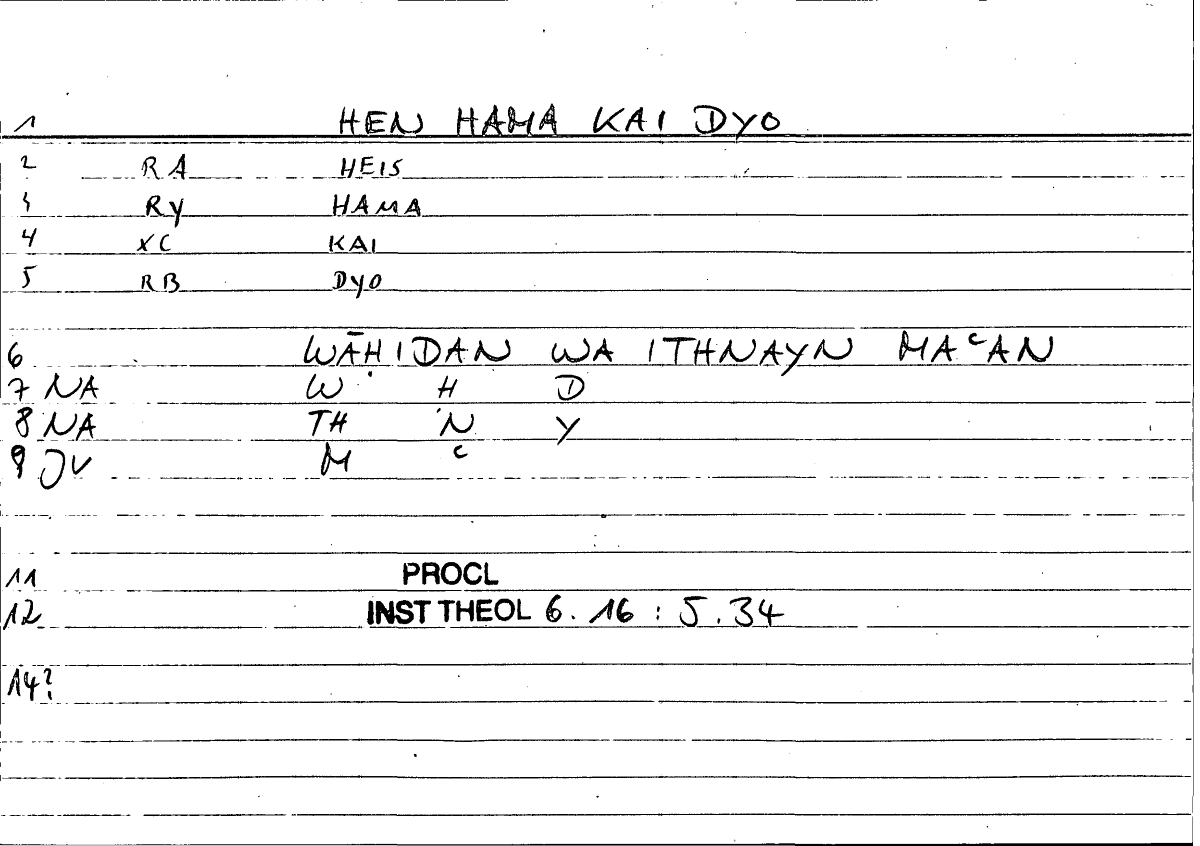 1 HEN HAMA KAI DYO
2 RA HEIS
3 RY HAMA
4 XC KAI
5 RB DYO
6 WĀḤIDAN WA ITHNAYN MAᶜAN
7 NA W Ḥ D
8 NA TH N Y
9 JV M ᶜ
11 PROCL
12 INST THEOL 6.16 : 5.34
14?